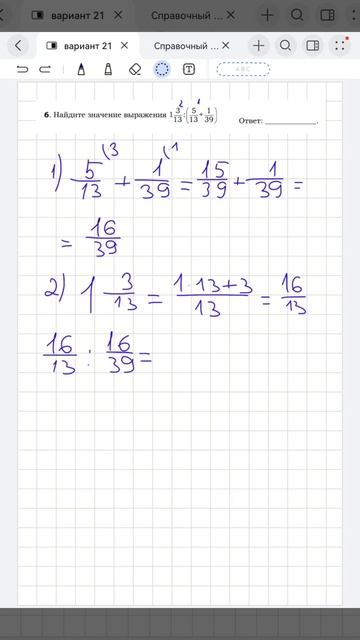 вариант 21 × Справочный
вариант 21 × Справочный ×
ABC
6. Найдите значение выражения 1 3/13 : (5/13 + 1/39) Ответ: ____________.
2 1
1) 5/13 (3 + 1/39 (·1 = 15/39 + 1/39 =
= 16/39
2) 1 3/13 = 1·13+3/13 = 16/13
16/13 : 16/39 =